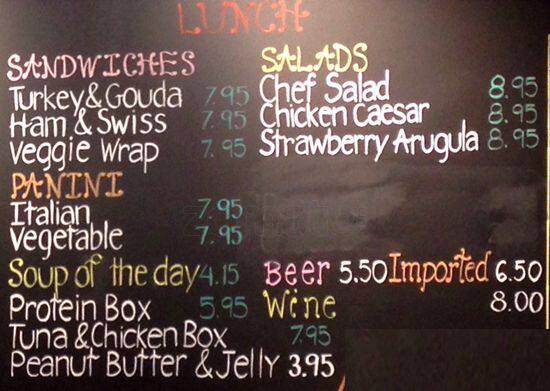 LUNCH
SANDWICHES
Turkey & Gouda 7.95
Ham & Swiss 7.95
Veggie Wrap 7.95
PANINI
Italian 7.95
Vegetable 7.95
Soup of the day 4.15
Protein Box 5.95
Tuna & Chicken Box 7.95
Peanut Butter & Jelly 3.95
SALADS
Chef Salad 8.95
Chicken Caesar 8.95
Strawberry Arugula 8.95
Beer 5.50 Imported 6.50
Wine 8.00